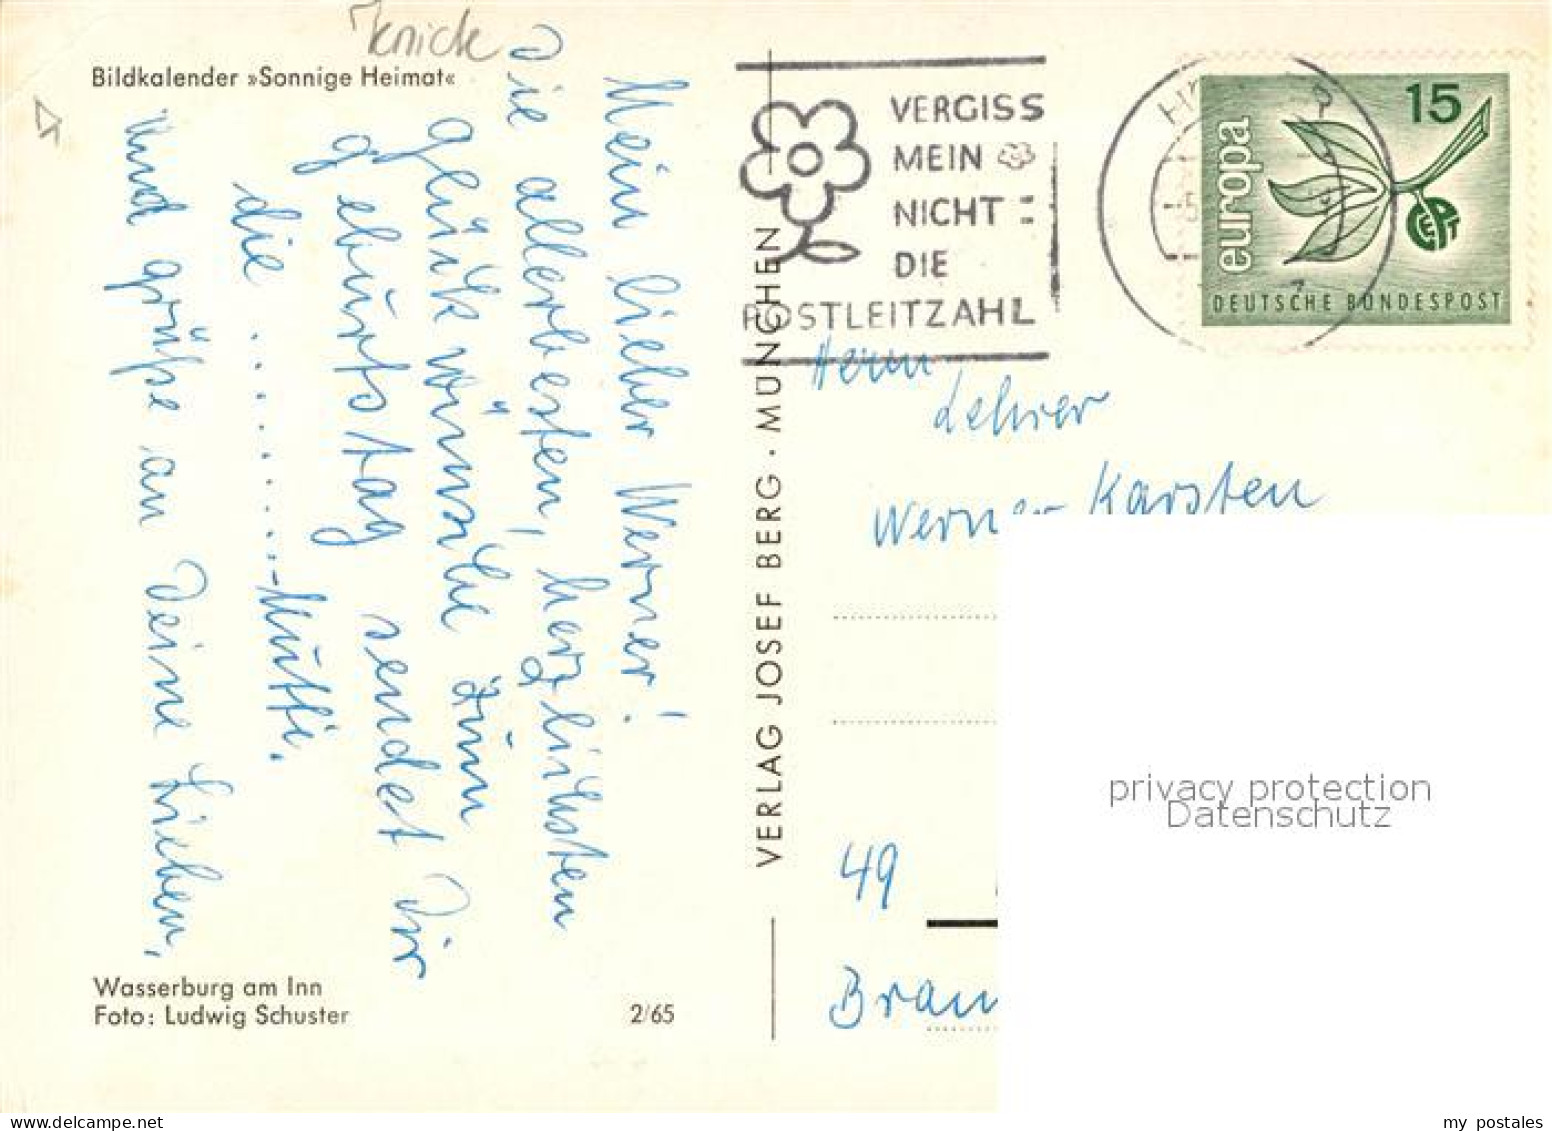 Knick
Bildkalender »Sonnige Heimat«
Mein lieber Werner!
Die allerbesten, herzlichsten
Glückwünsche zum
Geburtstag sendet Dir
die ..........Mutti.
Und grüße an Deine Lieben,
Wasserburg am Inn
Foto: Ludwig Schuster
2/65
VERLAG JOSEF BERG · MÜNCHEN
VERGISS
MEIN
NICHT
DIE
POSTLEITZAHL
europa
15
CEPT
DEUTSCHE BUNDESPOST
Herrn
Lehrer
Werner Karsten
privacy protection
Datenschutz
49
Brau
delcampe.net
my_postales